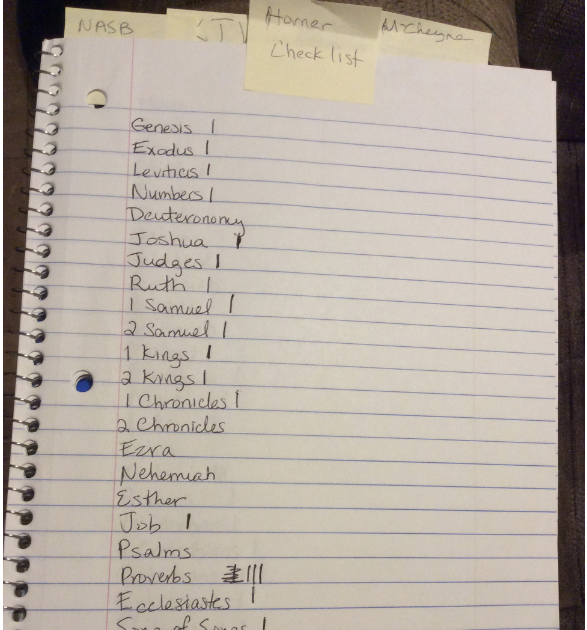 NASB
Horner
Checklist
M'Cheyne
Genesis |
Exodus |
Leviticus |
Numbers |
Deuteronomy
Joshua |
Judges |
Ruth |
1 Samuel |
2 Samuel |
1 Kings |
2 Kings |
1 Chronicles |
2 Chronicles
Ezra
Nehemiah
Esther
Job |
Psalms
Proverbs |||
Ecclesiastes |
Song of Songs |